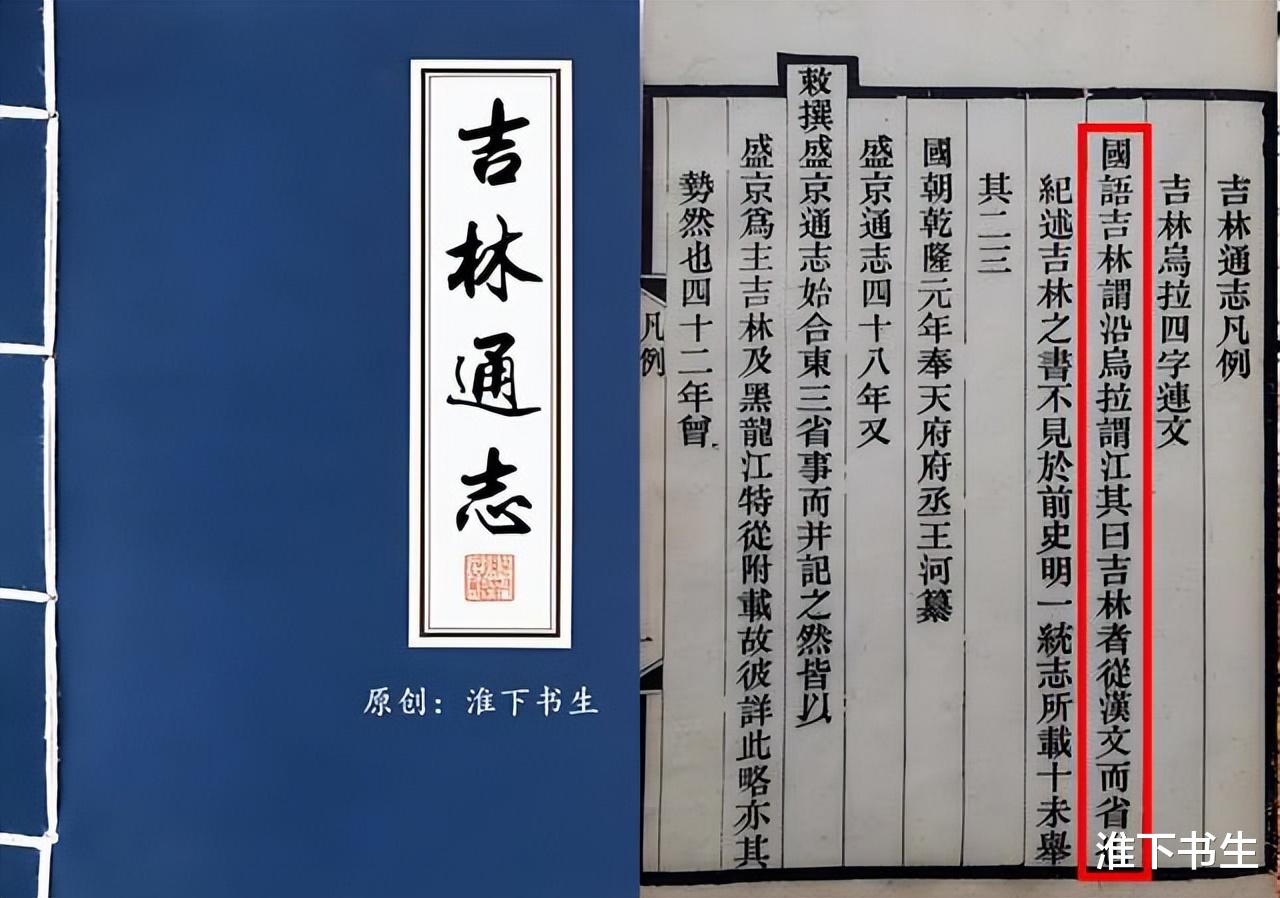 吉林通志
原创：淮下书生
吉林通志凡例
吉林烏拉四字連文
國語吉林謂沿烏拉謂江其曰吉林者從漢文而省
紀述吉林之書不見於前史明一統志所載十未舉
其二三
國朝乾隆元年奉天府府丞王河纂
盛京通志四十八年又
敕撰盛京通志始合東三省事而并記之然皆以
盛京爲主吉林及黑龍江特從附載故彼詳此略亦其
勢然也四十二年曾
凡例
淮下书生